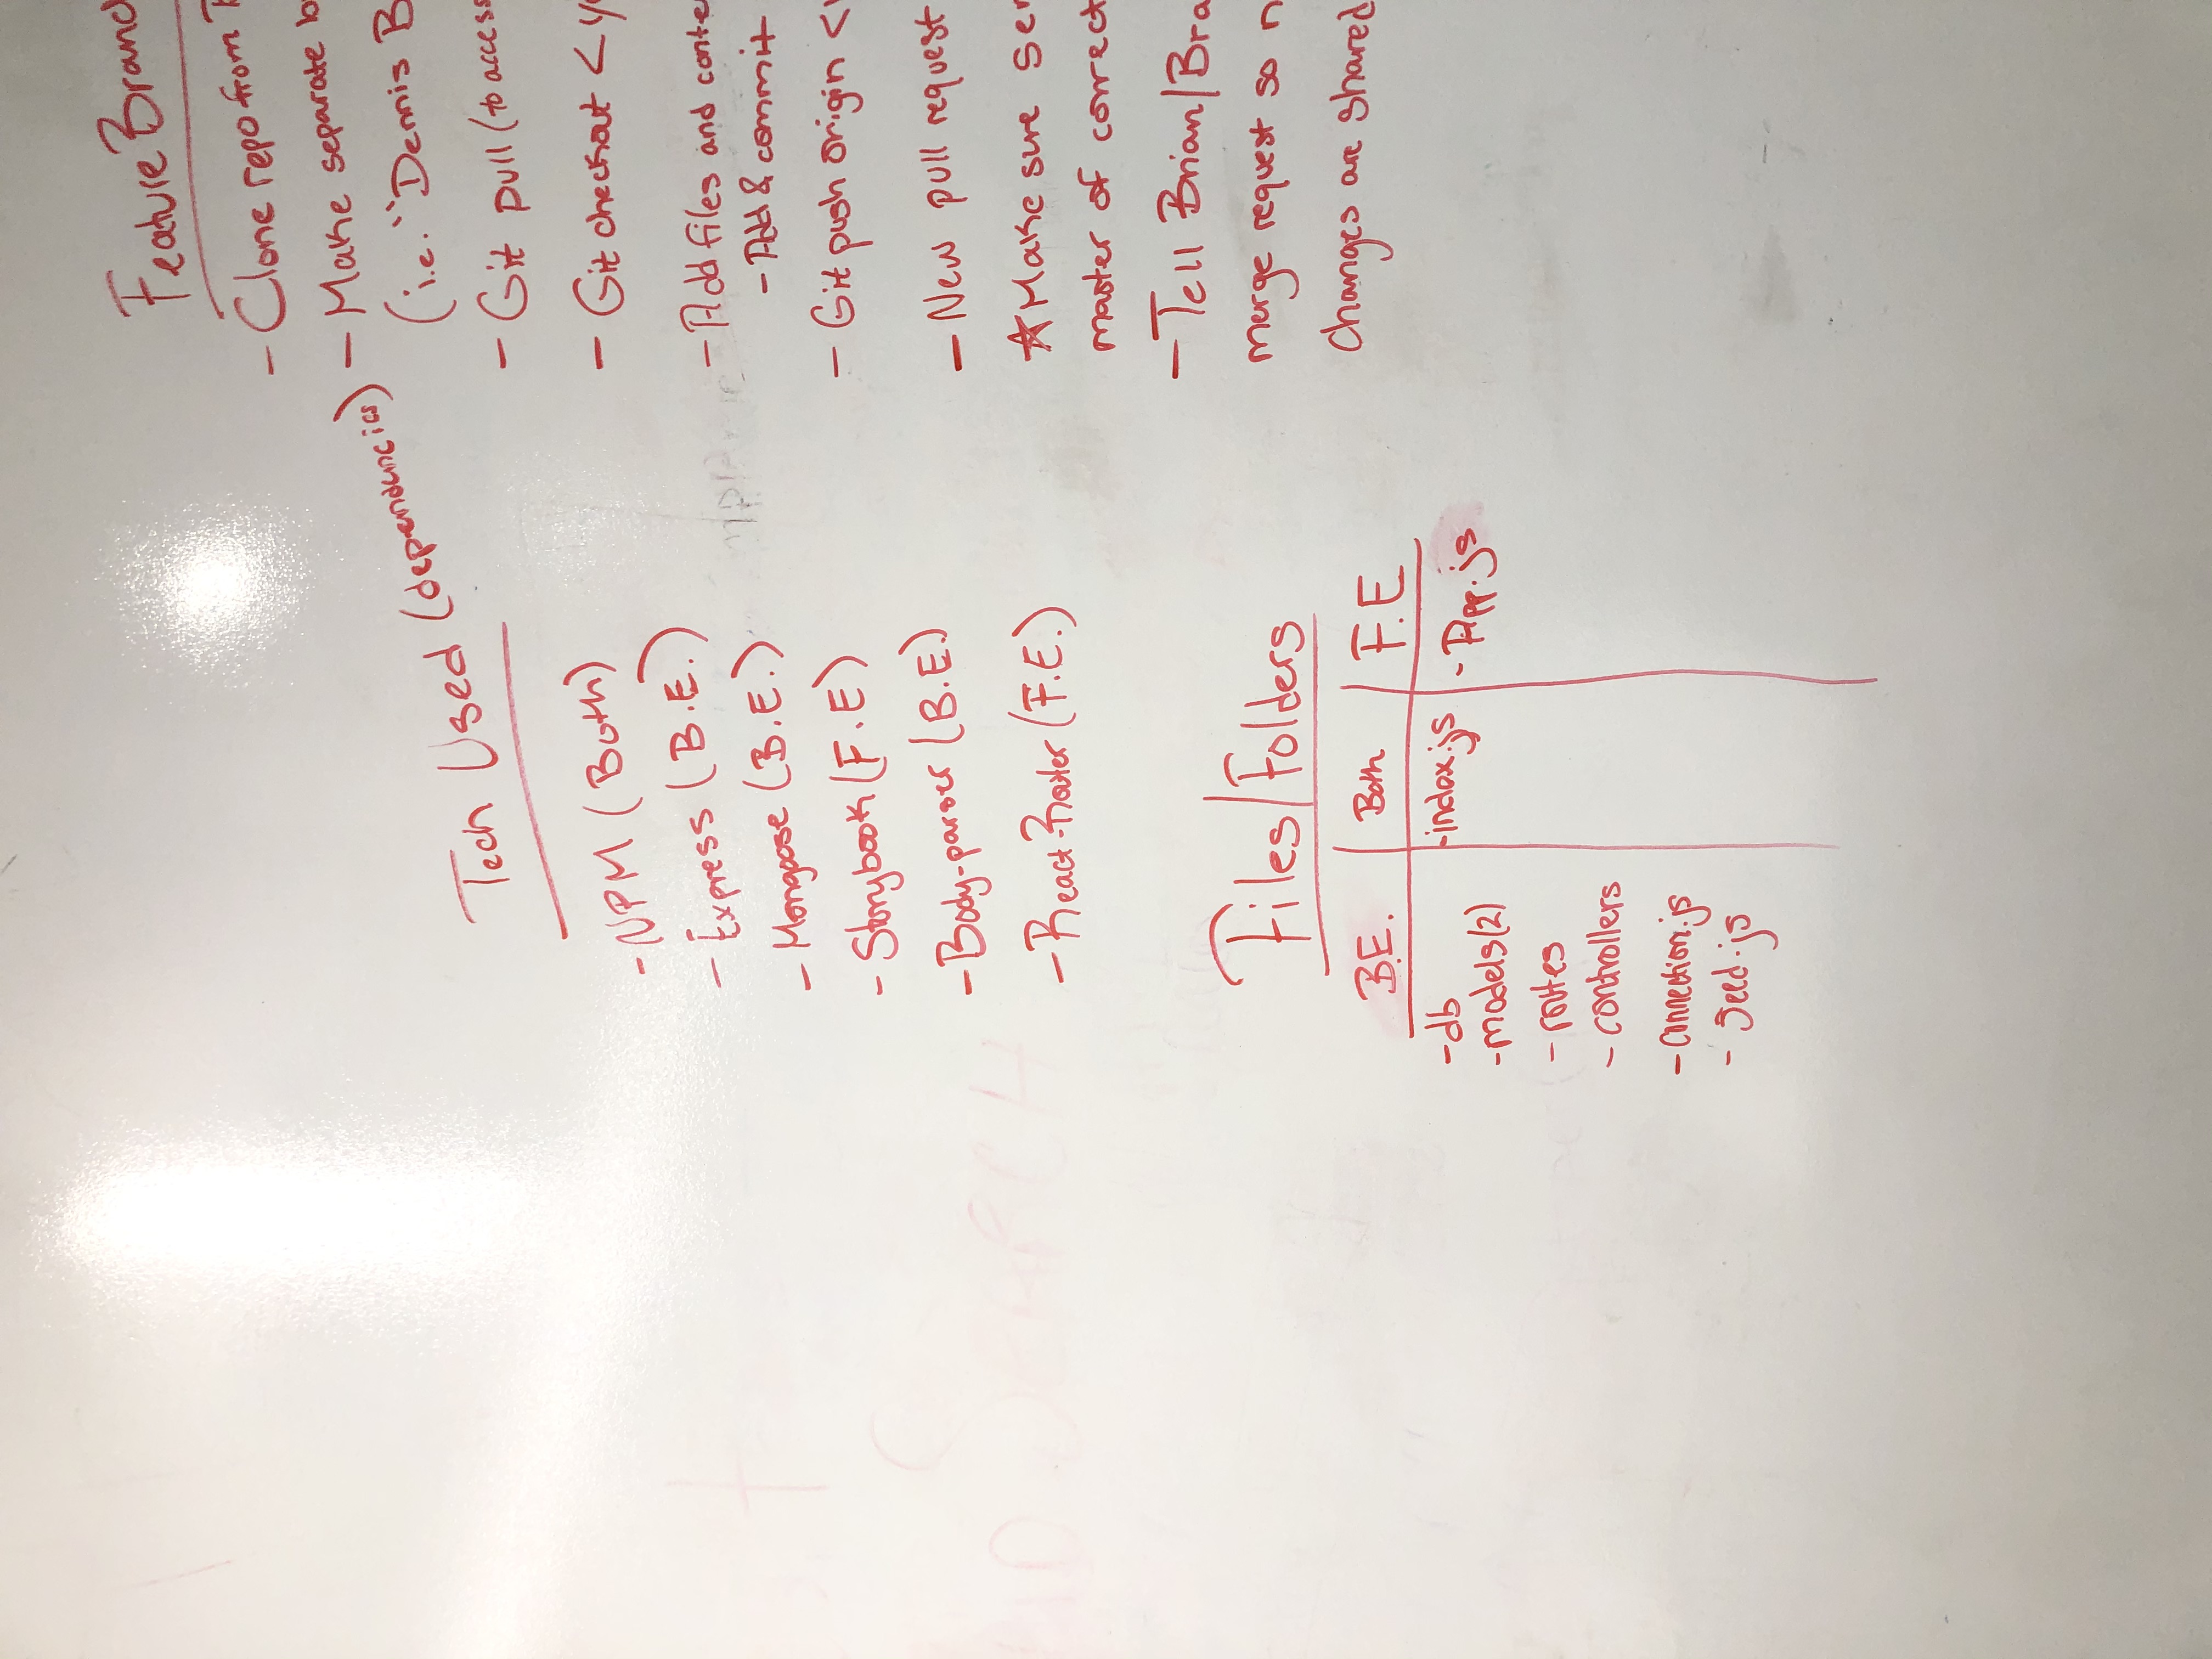 Tech Used (dependencies)
- NPM (Both)
- Express (B.E.)
- Mongoose (B.E.)
- Storybook (F.E)
- Body-parser (B.E.)
- React-Router (F.E.)
Files/Folders
B.E. Both F.E
- db - index.js - App.js
- models (2)
- routes
- controllers
- connection.js
- seed.js
Feature Branc
- Clone repo from
- Make separate
(i.e. "Dennis B
- Git pull (to access
- Git checkout <
- Add files and conte
- Add & commit
- Git push origin <
- New pull request
☆ Make sure
master of correct
- Tell Brian/Bra
merge request so
changes are shared
SEARCH